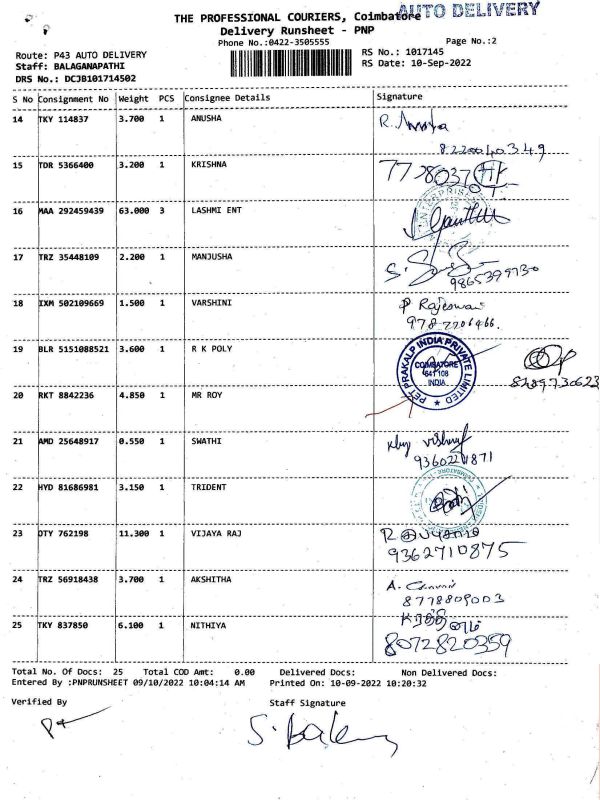 AUTO DELIVERY
THE PROFESSIONAL COURIERS, Coimbatore
Delivery Runsheet - PNP
Phone No.:0422-3505555
Page No.:2
Route: P43 AUTO DELIVERY
Staff: BALAGANAPATHI
DRS No.: DCJB101714502
RS No.: 1017145
RS Date: 10-Sep-2022
S No Consignment No Weight PCS Consignee Details Signature
14 TKY 114837 3.700 1 ANUSHA R.
8220040349
15 TDR 5366400 3.200 1 KRISHNA
16 MAA 292459439 63.000 3 LASHMI ENT
17 TRZ 35448109 2.200 1 MANJUSHA S.
9865399730
18 IXM 502109669 1.500 1 VARSHINI P Rajeswari
19 BLR 5151088521 3.600 1 R K POLY
PET PRAKALP INDIA PRIVATE LIMITED
COIMBATORE
641 108
INDIA
20 RKT 8842236 4.850 1 MR ROY
21 AMD 25648917 0.550 1 SWATHI
22 HYD 81686981 3.150 1 TRIDENT
23 OTY 762198 11.300 1 VIJAYA RAJ
9362710875
24 TRZ 56918438 3.700 1 AKSHITHA A.
8778809003
25 TKY 837850 6.100 1 NITHIYA
8072820359
Total No. Of Docs: 25 Total COD Amt: 0.00 Delivered Docs: Non Delivered Docs:
Entered By :PNPRUNSHEET 09/10/2022 10:04:14 AM Printed On: 10-09-2022 10:20:32
Verified By Staff Signature